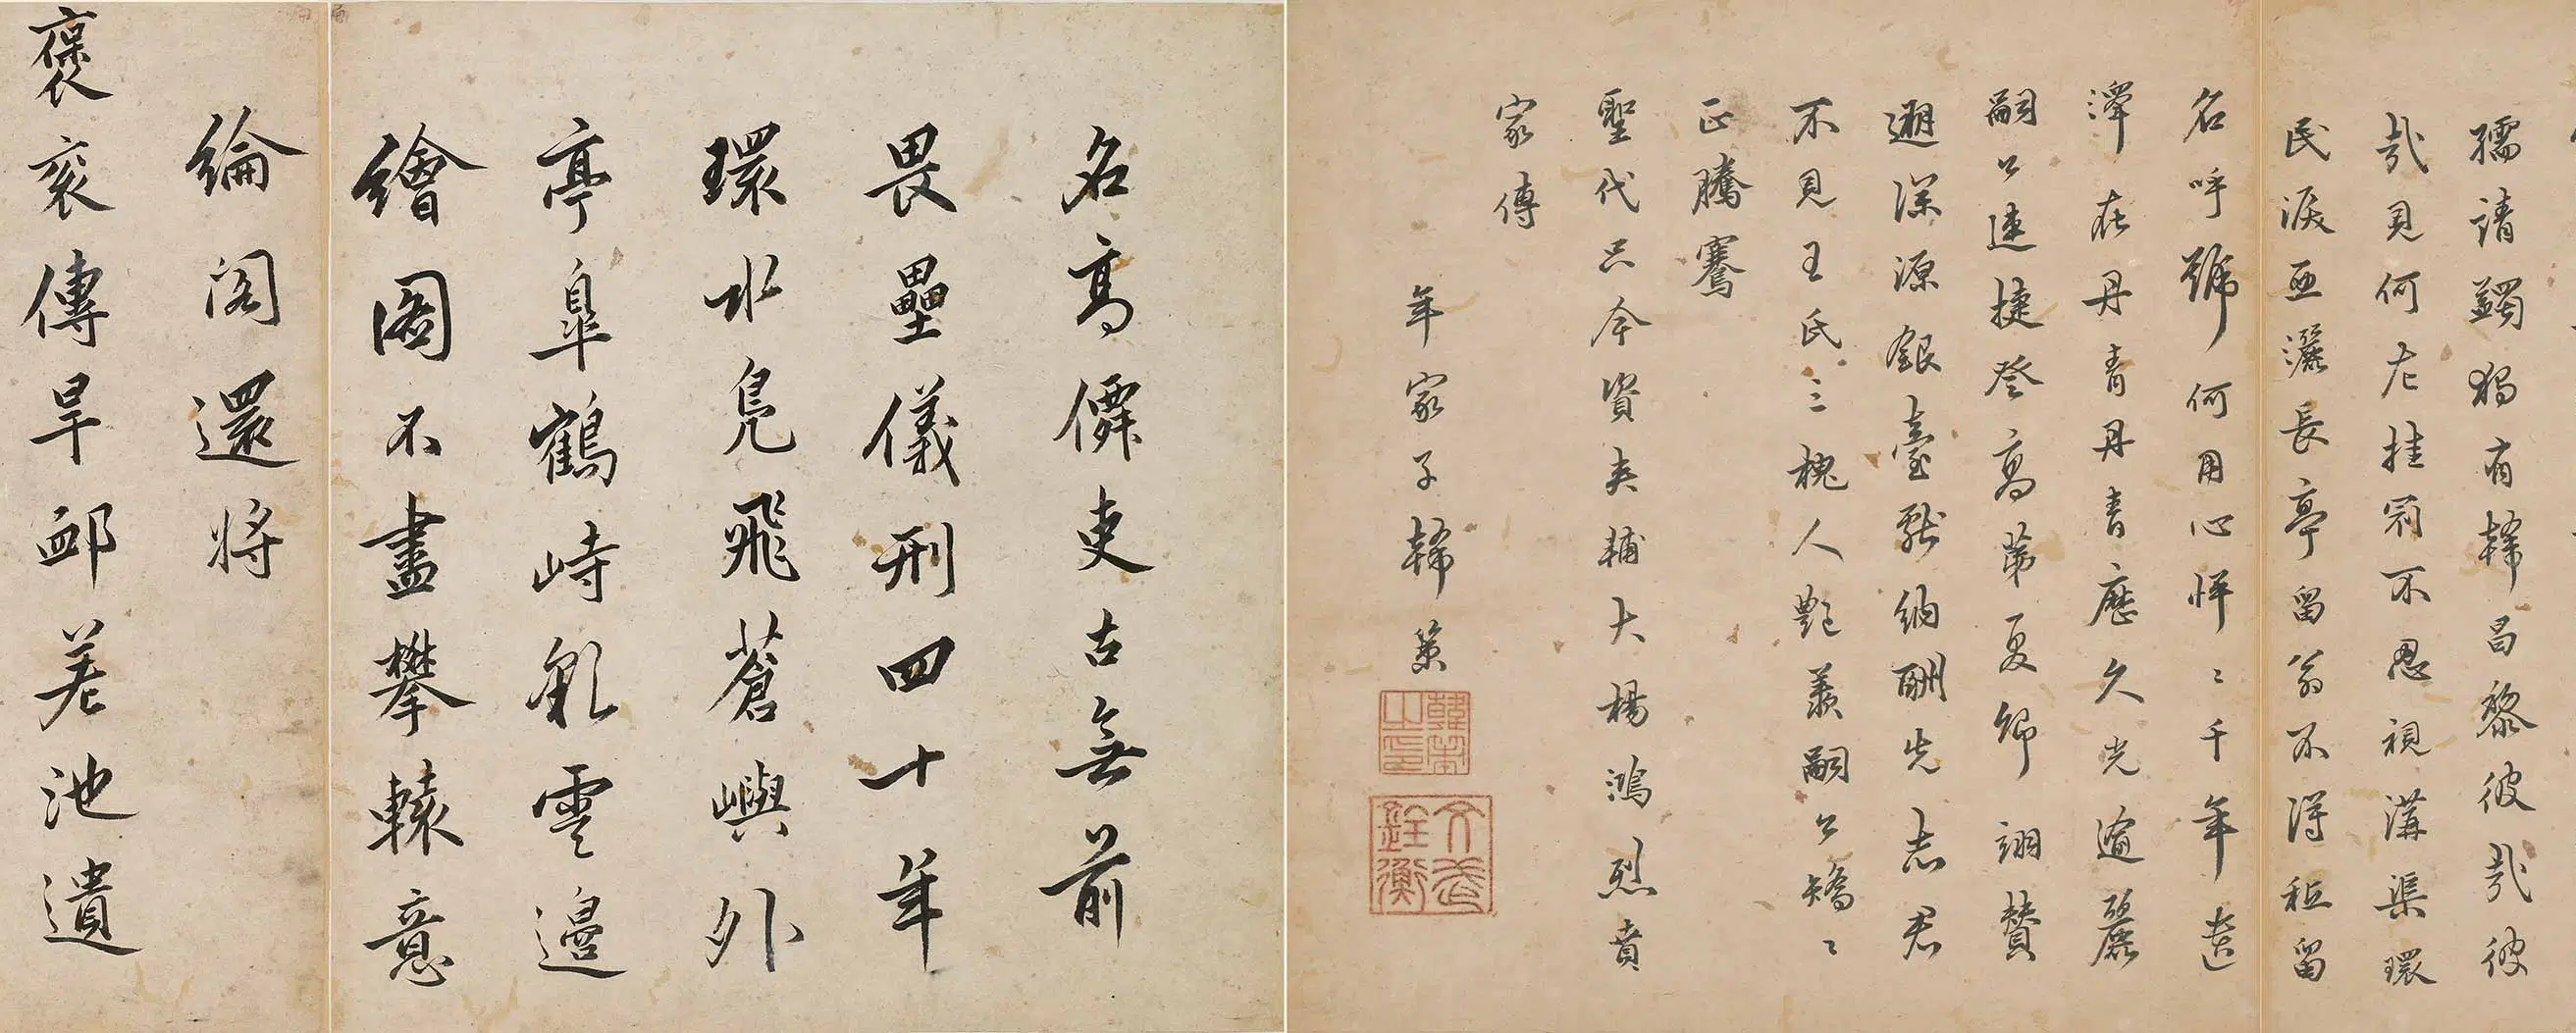 孺請蠲獨有韓昌黎彼哉彼
哉見何尤挂冠不忍視溝渠環
民淚亟灑長亭留翁不得秪留
名呼號何用心惮〻千年遺
澤在丹青丹青歷久光逾麗
嗣公連捷登高第夏卿詡贊
遡深源銀臺獻納酬先志君
不見王氏三槐人艷羨嗣公矯〻
正騰騫
聖代只今資夾輔大楊鴻烈賁
家傳
年家子韓菼
韓菼之印
名高僊吏古無前
畏壘儀刑四十年
環水鳧飛蒼嶼外
亭皐鶴峙彩雲邊
繪圖不盡攀轅意
綸閣還將
褒袞傳旱䘏差池遺